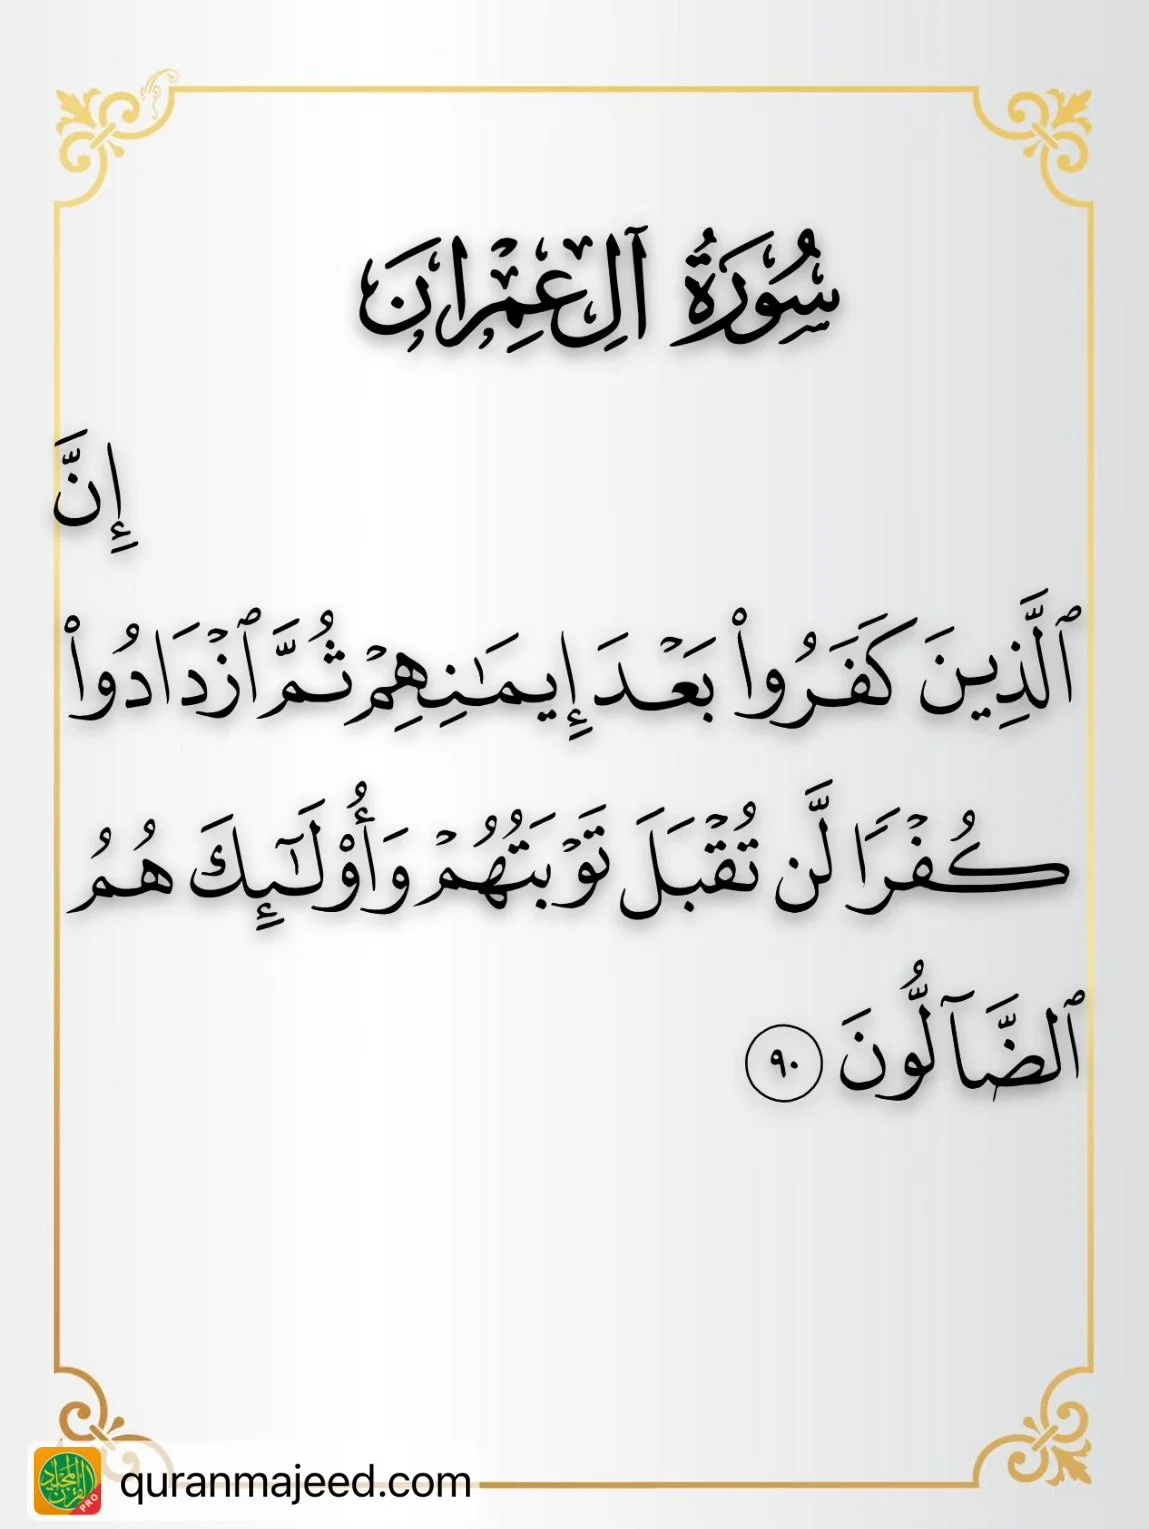 سُورَةُ آلِ عِمْرَانَ
إِنَّ
ٱلَّذِينَ كَفَرُوا۟ بَعْدَ إِيمَـٰنِهِمْ ثُمَّ ٱزْدَادُوا۟
كُفْرًا لَّن تُقْبَلَ تَوْبَتُهُمْ وَأُو۟لَـٰٓئِكَ هُمُ
ٱلضَّآلُّونَ ٩٠
quranmajeed.com